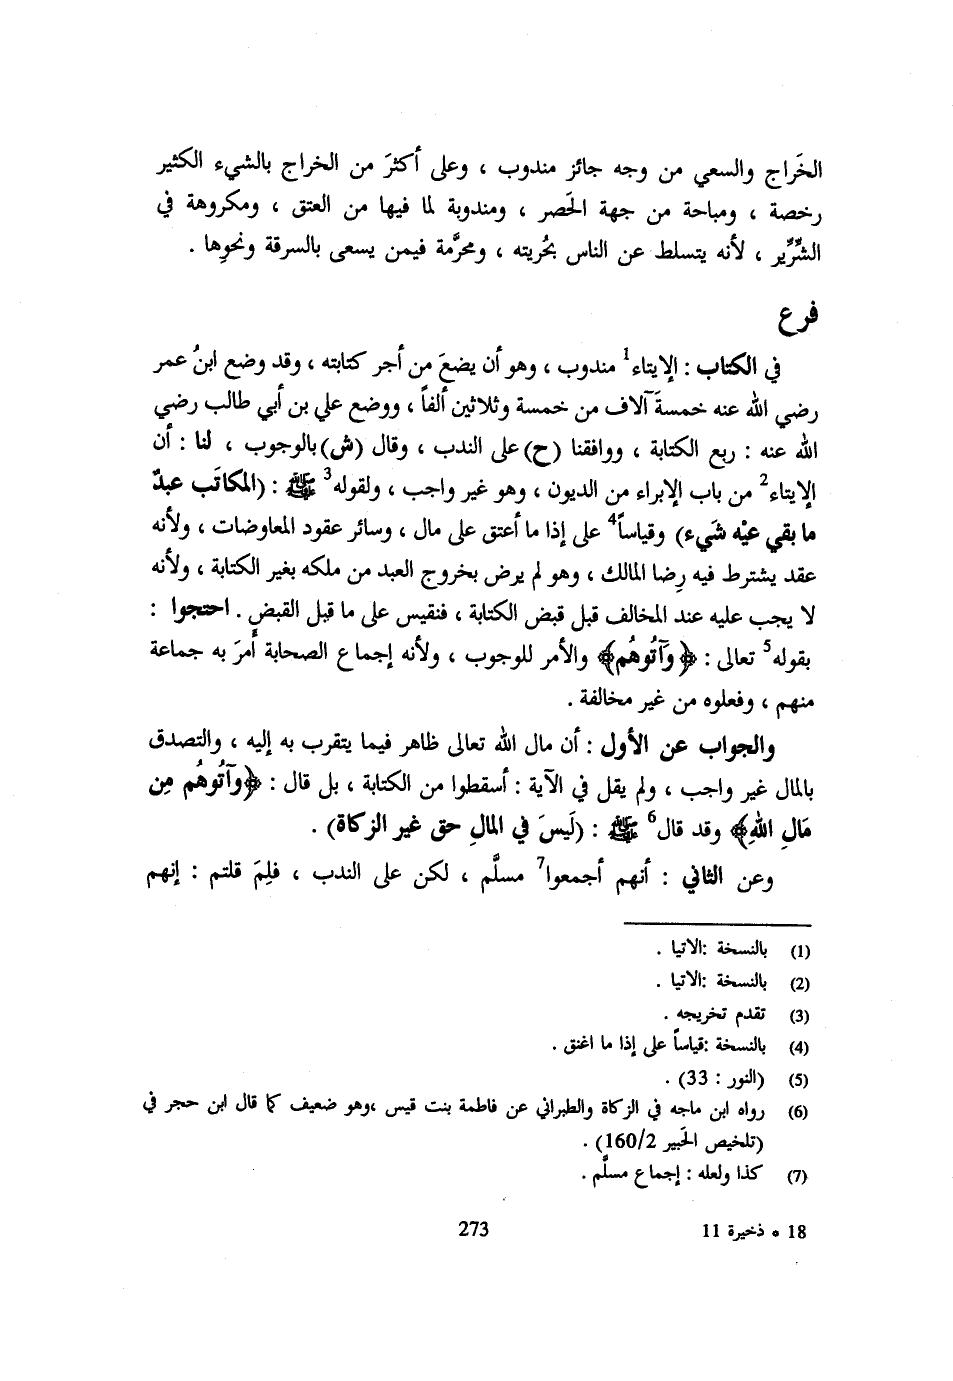 الخَراج والسعي من وجه جائز مندوب ، وعلى أكثرَ من الخراج بالشيء الكثير
رخصة ، ومباحة من جهة الحَصر ، ومندوبة لما فيها من العتق ، ومكروهة في
الشِّرِّير ، لأنه يتسلط عن الناس بحُريته ، ومحرَّمة فيمن يسعى بالسرقة ونحوِها .
فرع
في الكتاب : الإيتاء1 مندوب ، وهو أن يضعَ من أجر كتابته ، وقد وضع ابنُ عمر
رضي الله عنه خمسةَ آلاف من خمسة وثلاثين ألفاً ، ووضع علي بن أبي طالب رضي
الله عنه : ربع الكتابة ، ووافقنا (ح) على الندب ، وقال (ش) بالوجوب ، لنا : أن
الإيتاء2 من باب الإبراء من الديون ، وهو غير واجب ، ولقوله3 ﷺ : (المكاتَب عبدٌ
ما بقي عيْه شَيء) وقياساً4 على إذا ما أعتق على مال ، وسائر عقود المعاوضات ، ولأنه
عقد يشترط فيه رِضا المالك ، وهو لم يرض بخروج العبد من ملكه بغير الكتابة ، ولأنه
لا يجب عليه عند المخالف قبل قبض الكتابة ، فنقيس على ما قبل القبض . احتجوا :
بقوله5 تعالى : ﴿وَآتُوهُم﴾ والأمر للوجوب ، ولأنه إجماع الصحابة أمرَ به جماعة
منهم ، وفعلوه من غير مخالفة .
والجواب عن الأول : أن مال الله تعالى ظاهر فيما يتقرب به إليه ، والتصدق
بالمال غير واجب ، ولم يقل في الآية : أسقطوا من الكتابة ، بل قال : ﴿وَآتُوهُم مِن
مَالِ اللهِ﴾ وقد قال6 ﷺ : (لَيسَ في المالِ حق غير الزكاة) .
وعن الثاني : أنهم أجمعوا7 مسلَّم ، لكن على الندب ، فلِمَ قلتم : إنهم
(1) بالنسخة :الاتيا .
(2) بالنسخة :الاتيا .
(3) تقدم تخريجه .
(4) بالنسخة :قياساً على إذا ما اغنق .
(5) (النور : 33) .
(6) رواه ابن ماجه في الزكاة والطبراني عن فاطمة بنت قيس ،وهو ضعيف كما قال ابن حجر في
(تلخيص الحَبير 160/2) .
(7) كذا ولعله : إجماع مسلَّم .
18 * ذخيرة 11
273